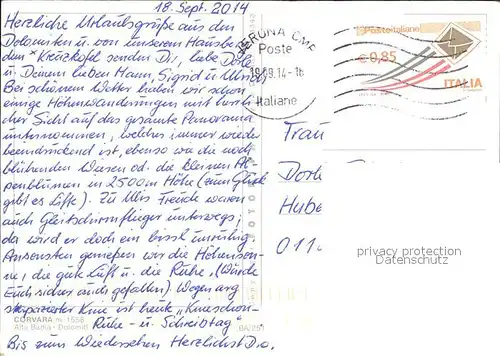 18. Sept. 2014
Herzliche Urlaubsgrüße aus den
Dolomiten u. von unserem Hausberg
dem "Kreuzkofel senden Dir, liebe Dorle
u. Deinem lieben Mann, Sigrid u. Ulrich
Bei schönem Wetter haben wir schon
einige Höhenwanderungen mit herrli-
cher Sicht auf das gesamte Panorama
unternommen, welches immer wieder
beeindruckend ist, ebenso wie die noch
blühenden Wiesen od. die kleinen Al-
penblumen in 2500m Höhe (zum Glück
gibt es Lifte). Zu Ulis Freude waren
auch Gleitschirmflieger unterwegs;
da wird er doch ein bissl unruhig.
Ansonsten genießen wir die Höhenson-
ne, die gute Luft u. die Ruhe. (Würde
Euch sicher auch gefallen). Wegen arg
strapazierter Knie ist heute "Knieschon-
Ruhe- u. Schreibtag"
Bis zum Wiedersehen Herzlichst D.o.
CORVARA m 1558
Alta Badia - Dolomiti
BA/251
FOTO
VERONA CMP
Poste
19.09.14-16
Italiane
Posteitaliane
€ 0,85
ITALIA
Trau
Dorl
Hube
011
privacy protection
Datenschutz